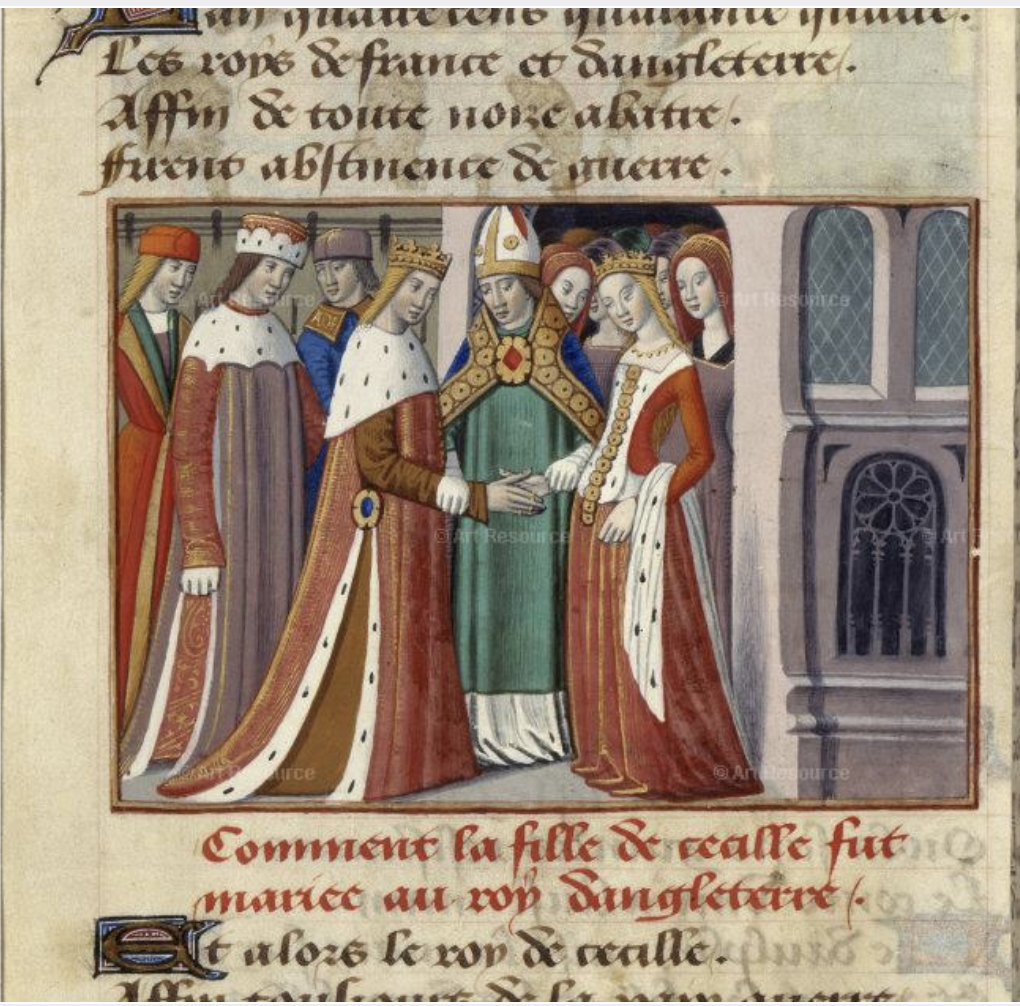 Lan quatre cens quarante quatre.
Les roys de france et dangleterre.
Affin de toute noize abatre.
ffirent abstinence de guerre.
Comment la fille de cecille fut
mariee au roy dangleterre.
Et alors le roy de cecille.
Affin tousiours de la paix
© Art Resource
© Art Resource
© Art Resource
© Art Resource
© Art Resource
© Art Resource